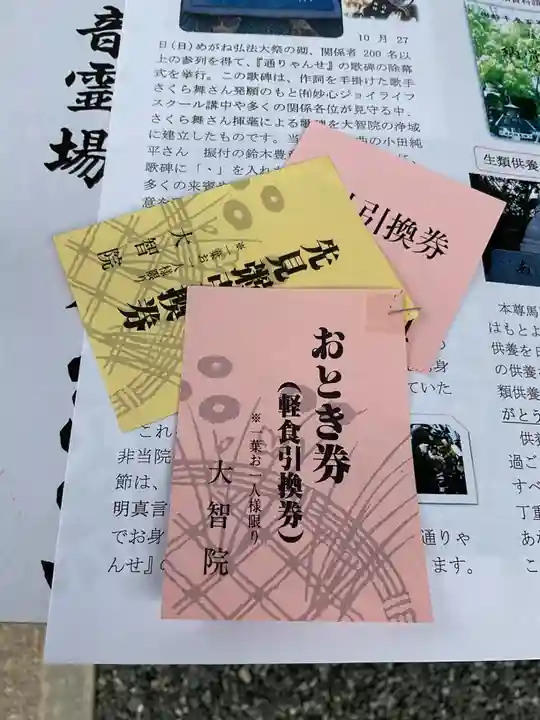 音霊場
10月27
日(日)めがね弘法大祭の砌、関係者200名以
上の参列を得て、『通りゃんせ』の歌碑の除幕
式を挙行。この歌碑は、作詞を手掛けた歌手
さくら舞さん発願のもと㈲妙心ジョイライフ
スクール講中や多くの関係各位が見守る中、
さくら舞さん揮毫による歌碑を大智院の浄域
に建立したものです。当
の小田純
平さん 振付の鈴木豊
歌碑に「・」を入れ
多くの来賓
意を
引換券
先見
換券
※一葉お一人様限り
大智院
おとき券
(軽食引換券)
※一葉お一人様限り
大智院
ていた
これ
非当院
節は、
明真言
でお身
通りゃ
んせ』の
ます。
生類供養
本尊馬
はもとよ
供養を日
の供養を
類供養
がとう
供養
過ご
すべ
丁重
あ
こ